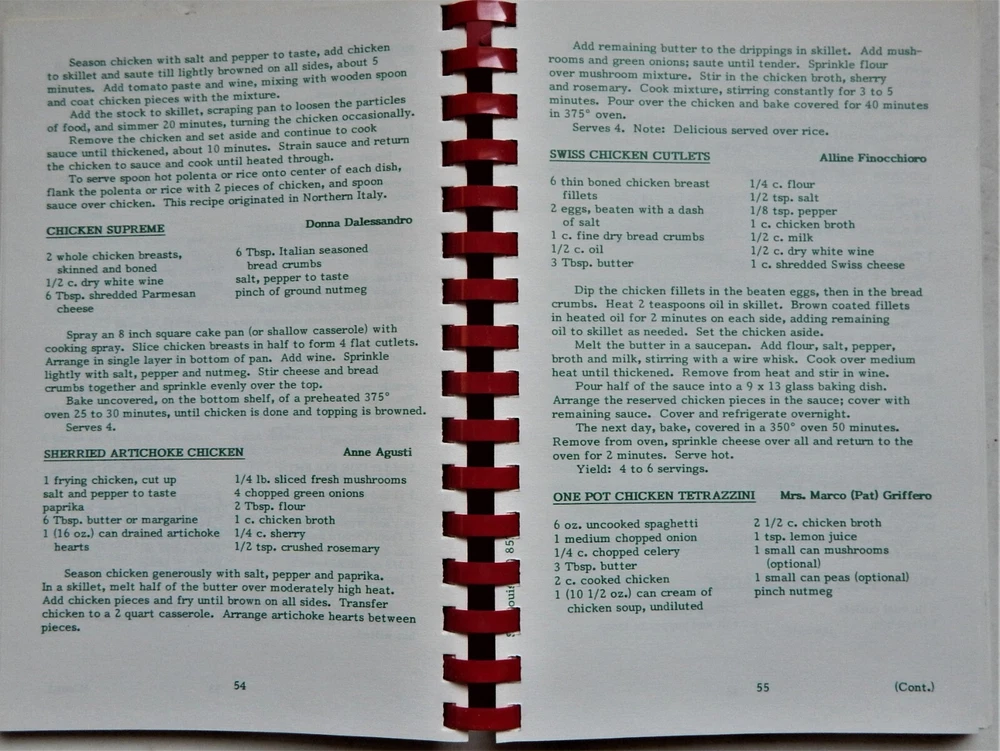 Season chicken with salt and pepper to taste, add chicken
to skillet and saute till lightly browned on all sides, about 5
minutes. Add tomato paste and wine, mixing with wooden spoon
and coat chicken pieces with the mixture.
Add the stock to skillet, scraping pan to loosen the particles
of food, and simmer 20 minutes, turning the chicken occasionally.
Remove the chicken and set aside and continue to cook
sauce until thickened, about 10 minutes. Strain sauce and return
the chicken to sauce and cook until heated through.
To serve spoon hot polenta or rice onto center of each dish,
flank the polenta or rice with 2 pieces of chicken, and spoon
sauce over chicken. This recipe originated in Northern Italy.
CHICKEN SUPREME Donna Dalessandro
2 whole chicken breasts,
skinned and boned
1/2 c. dry white wine
6 Tbsp. shredded Parmesan
cheese
6 Tbsp. Italian seasoned
bread crumbs
salt, pepper to taste
pinch of ground nutmeg
Spray an 8 inch square cake pan (or shallow casserole) with
cooking spray. Slice chicken breasts in half to form 4 flat cutlets.
Arrange in single layer in bottom of pan. Add wine. Sprinkle
lightly with salt, pepper and nutmeg. Stir cheese and bread
crumbs together and sprinkle evenly over the top.
Bake uncovered, on the bottom shelf, of a preheated 375°
oven 25 to 30 minutes, until chicken is done and topping is browned.
Serves 4.
SHERRIED ARTICHOKE CHICKEN Anne Agusti
1 frying chicken, cut up
salt and pepper to taste
paprika
6 Tbsp. butter or margarine
1 (16 oz.) can drained artichoke
hearts
1/4 lb. sliced fresh mushrooms
4 chopped green onions
2 Tbsp. flour
1 c. chicken broth
1/4 c. sherry
1/2 tsp. crushed rosemary
Season chicken generously with salt, pepper and paprika.
In a skillet, melt half of the butter over moderately high heat.
Add chicken pieces and fry until brown on all sides. Transfer
chicken to a 2 quart casserole. Arrange artichoke hearts between
pieces.
54
Add remaining butter to the drippings in skillet. Add mush-
rooms and green onions; saute until tender. Sprinkle flour
over mushroom mixture. Stir in the chicken broth, sherry
and rosemary. Cook mixture, stirring constantly for 3 to 5
minutes. Pour over the chicken and bake covered for 40 minutes
in 375° oven.
Serves 4. Note: Delicious served over rice.
SWISS CHICKEN CUTLETS Alline Finocchioro
6 thin boned chicken breast
fillets
2 eggs, beaten with a dash
of salt
1 c. fine dry bread crumbs
1/2 c. oil
3 Tbsp. butter
1/4 c. flour
1/2 tsp. salt
1/8 tsp. pepper
1 c. chicken broth
1/2 c. milk
1/2 c. dry white wine
1 c. shredded Swiss cheese
Dip the chicken fillets in the beaten eggs, then in the bread
crumbs. Heat 2 teaspoons oil in skillet. Brown coated fillets
in heated oil for 2 minutes on each side, adding remaining
oil to skillet as needed. Set the chicken aside.
Melt the butter in a saucepan. Add flour, salt, pepper,
broth and milk, stirring with a wire whisk. Cook over medium
heat until thickened. Remove from heat and stir in wine.
Pour half of the sauce into a 9 x 13 glass baking dish.
Arrange the reserved chicken pieces in the sauce; cover with
remaining sauce. Cover and refrigerate overnight.
The next day, bake, covered in a 350° oven 50 minutes.
Remove from oven, sprinkle cheese over all and return to the
oven for 2 minutes. Serve hot.
Yield: 4 to 6 servings.
ONE POT CHICKEN TETRAZZINI Mrs. Marco (Pat) Griffero
6 oz. uncooked spaghetti
1 medium chopped onion
1/4 c. chopped celery
3 Tbsp. butter
2 c. cooked chicken
1 (10 1/2 oz.) can cream of
chicken soup, undiluted
2 1/2 c. chicken broth
1 tsp. lemon juice
1 small can mushrooms
(optional)
1 small can peas (optional)
pinch nutmeg
55 (Cont.)